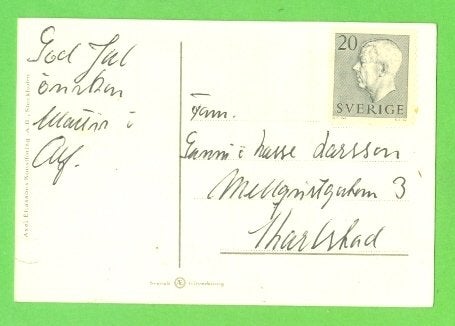 God Jul
önskar
Martin i
Alf.
Axel Eliassons Konstförlag A.B. Stockholm
20
SVERIGE
Fam.
Gunni i Lasse Larsson
Mellqvistgatan 3
Karlstad
Svensk tillverkning